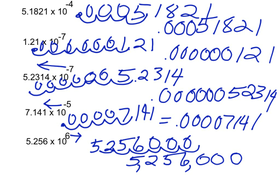 5.1821 x 10^-4 .00051821
.00051821
1.21 x 10^-7 .000000121
.000000121
5.2314 x 10^-7 0000005.2314
.00000052314
7.141 x 10^-5 .00007,141 = .00007141
5.256 x 10^6 5.256000
5,256,000